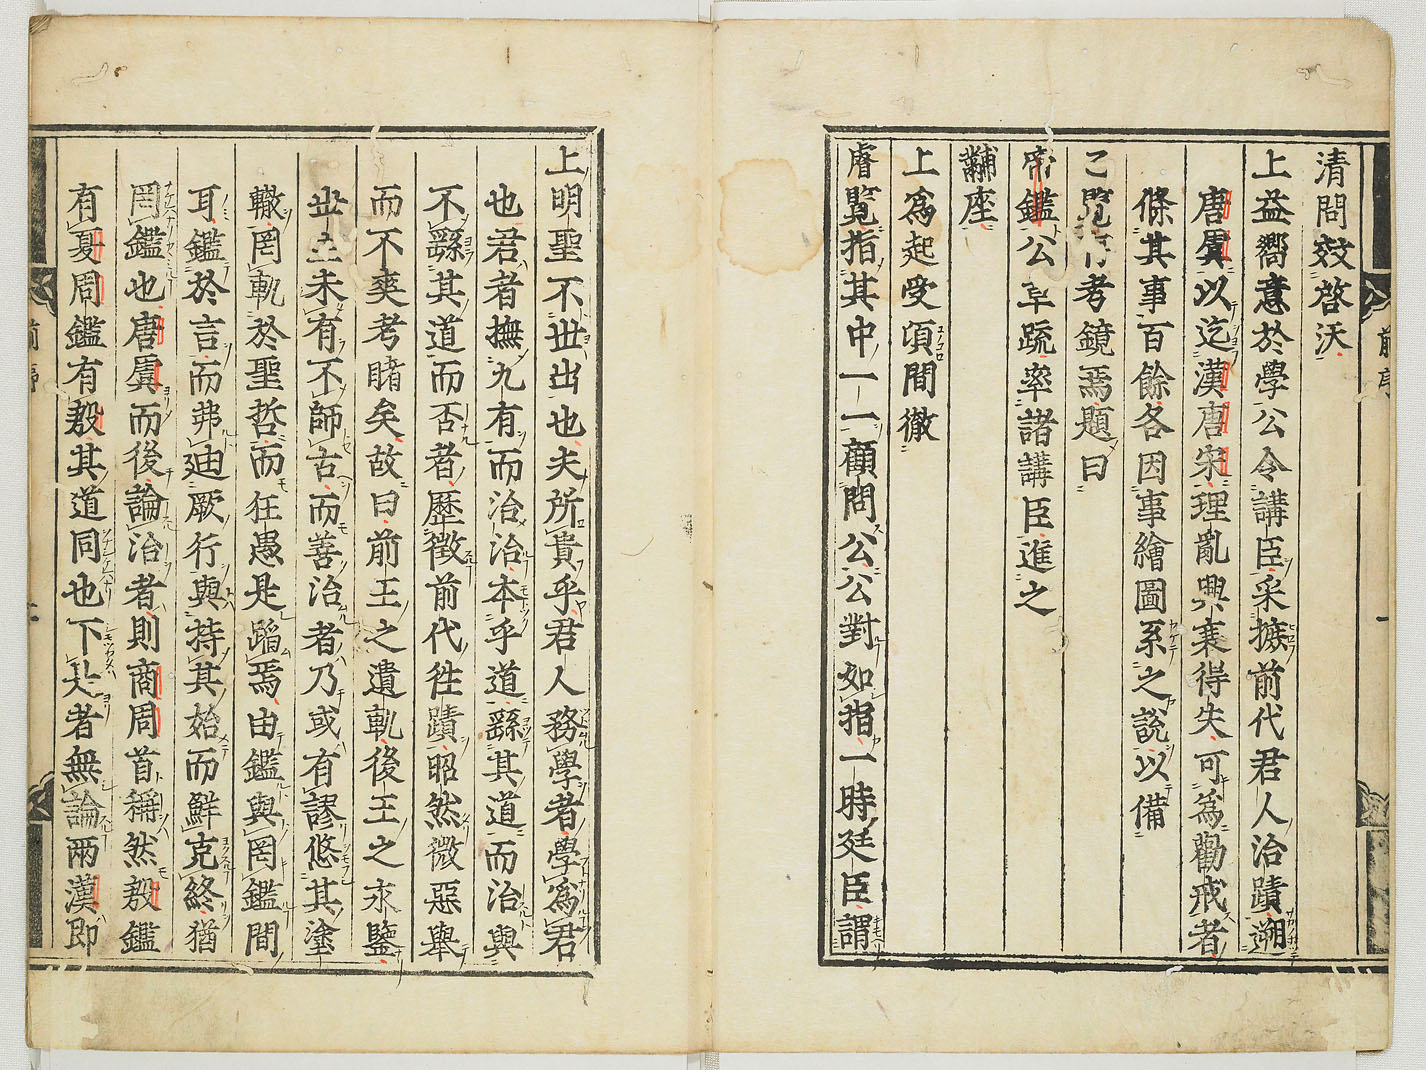 清問效啓沃
上益嚮意於學公令講臣采摭前代君人治蹟遡
唐虞以迄漢唐宋理亂興衰得失可為勸戒者
條其事百餘各因事繪圖系之說以備
乙覧 考鏡焉題曰
帝鑑公卓疏率諸講臣進之
黼座
上為起受頃間徹
睿覧指其中一一顧問公公對如指一時廷臣謂
上明聖不世出也夫所貴乎君人務學者學為君
也君者撫九有而治治本乎道繇其道而治與
不繇其道而否者歷徵前代徃蹟昭然微惡舉
而不爽考睹矣故曰前王之遺軌後王之永鑒
世主未有不師古而善治者乃或有謬悠其塗
轍罔軌於聖哲而狂愚是蹈焉由鑑與罔鑑間
耳鑑於言而弗迪厥行與持其始而鮮克終猶
罔鑑也唐虞而後論治者則商周首稱然殷鑑
有夏周鑑有殷其道同也下是者無論兩漢即
前序